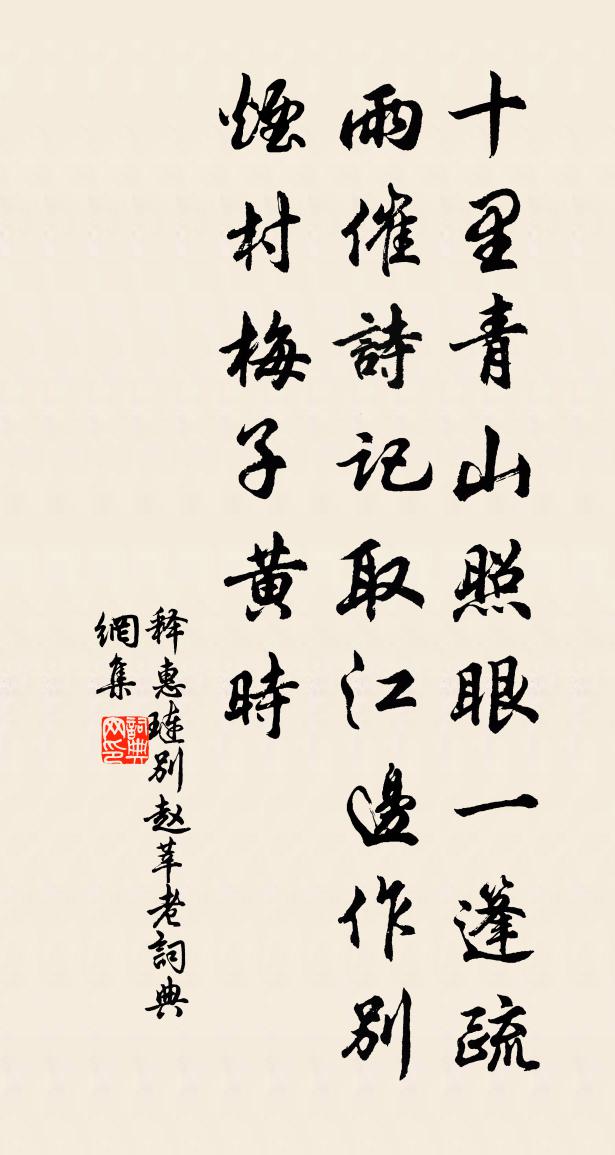 十里青山照眼一蓬疏
雨催詩記取江邊作別
煙村梅子黄時
释惠琏别赵莘老詞典
網集
詞典
网印